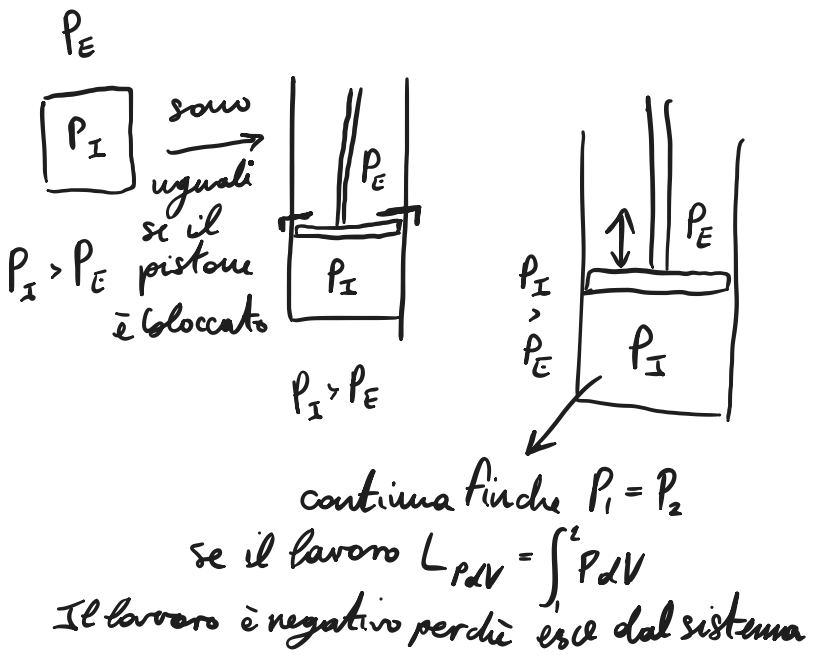 P_E
P_I
P_I > P_E
sono
uguali
se il
pistone
è bloccato
P_E
P_I
P_I > P_E
P_E
P_I
>
P_E
P_I
continua finche P_1 = P_2
se il lavoro L_PdV = ∫_1^2 PdV
Il lavoro è negativo perchè esce dal sistema